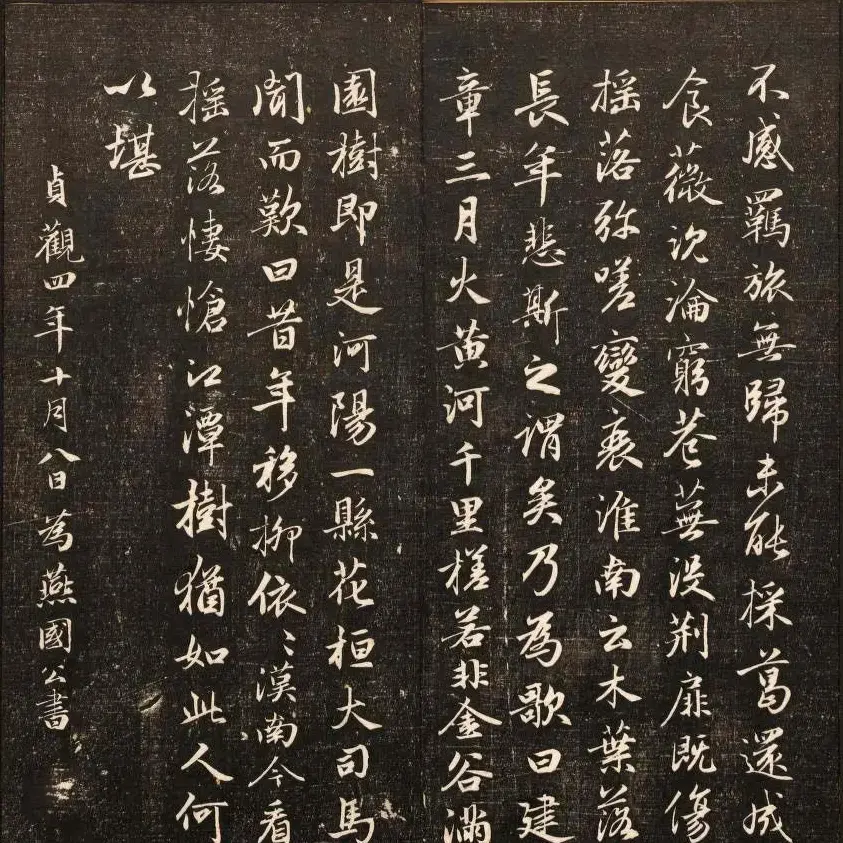 不感羈旅無歸未能採葛還成
食薇沉淪窮巷蕪没荆扉既傷
揺落弥嗟變衰淮南云木葉落
長年悲斯之謂矣乃為歌曰建
章三月火黄河千里槎若非金谷滿
園樹即是河陽一縣花桓大司馬
聞而歎曰昔年移柳依〻漢南今看
揺落悽愴江潭樹猶如此人何
以堪
貞觀四年十月八日為燕國公書